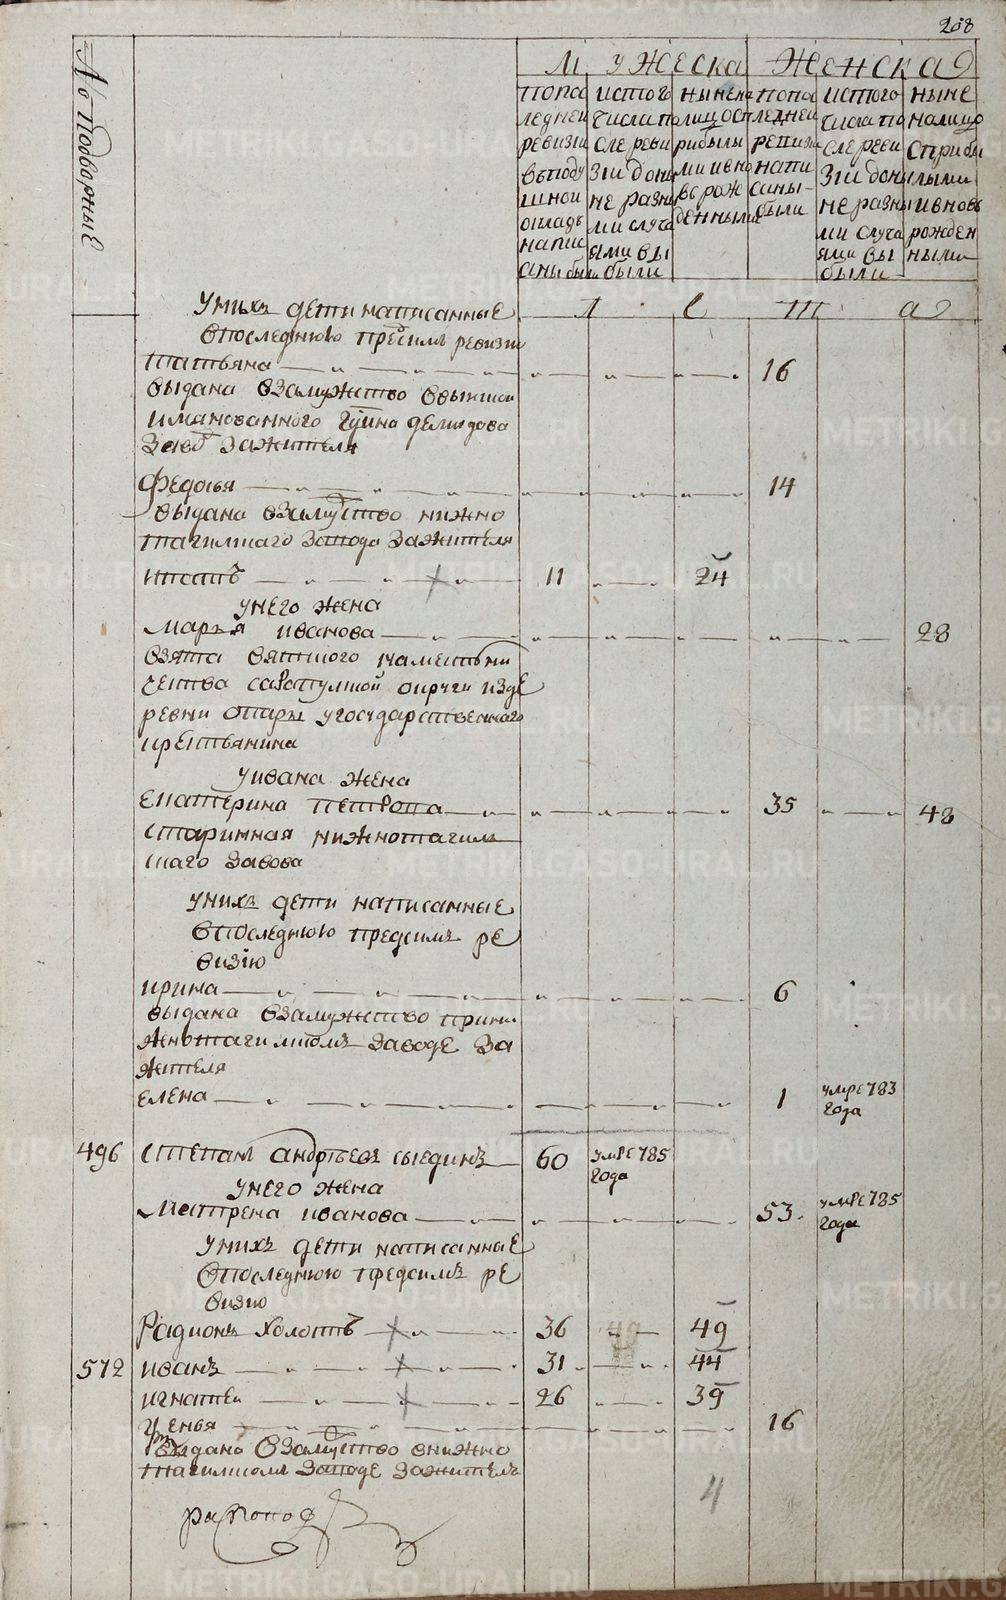 208
№ Подворные
Мужеска
Женска
попос
ледней
ревизи
в подуш
шной
окладъ
напис
аны были
истого
числа по
сле реви
зіи доны
не разны
ми случа
ями вы
были
ныне на
лицо сп
рибылы
ми и вно
въ рож
денными
попос
ледней
ревизи
напи
саны
были
истого
числа по
сле реви
зіи доны
не разны
ми случа
ями вы
были
ныне
налицо
с прибы
лыми
и вновь
рожден
ными
л е т а
у нихъ дети написанные
в последнюю пред симъ ревизию
татьяна 16
выдана в замужство в вышеи
имянованного демидова
завод за жителя
федосья 14
выдана в замужство нижно
тагилскаго завода за жителя
ипатъ 11 24
у него жена
марья иванова 28
взята вятского намѣстни
чества сарапулской округи из де
ревни отары у государственнаго
крестьянина
у ивана жена
екатерина петрова 35 48
старинная нижнотагил
скаго завода
у нихъ дети написанные
в последнюю пред симъ ре
визію
ирина 6
выдана в замужство при ни
жнотагилскомъ заводе за
жителя
елена 1 умре 783
года
496 степанъ андреевъ сыединъ 60 умре 785
года
у него жена
матрена иванова 53 умре 785
года
у нихъ дети написанные
в последнюю пред симъ ре
визію
Радионъ холостъ 36 49
572 иванъ 31 44
игнатеи 26 39
16
выдана в замужство в нижно
тагилскомъ заводе за жителя
4